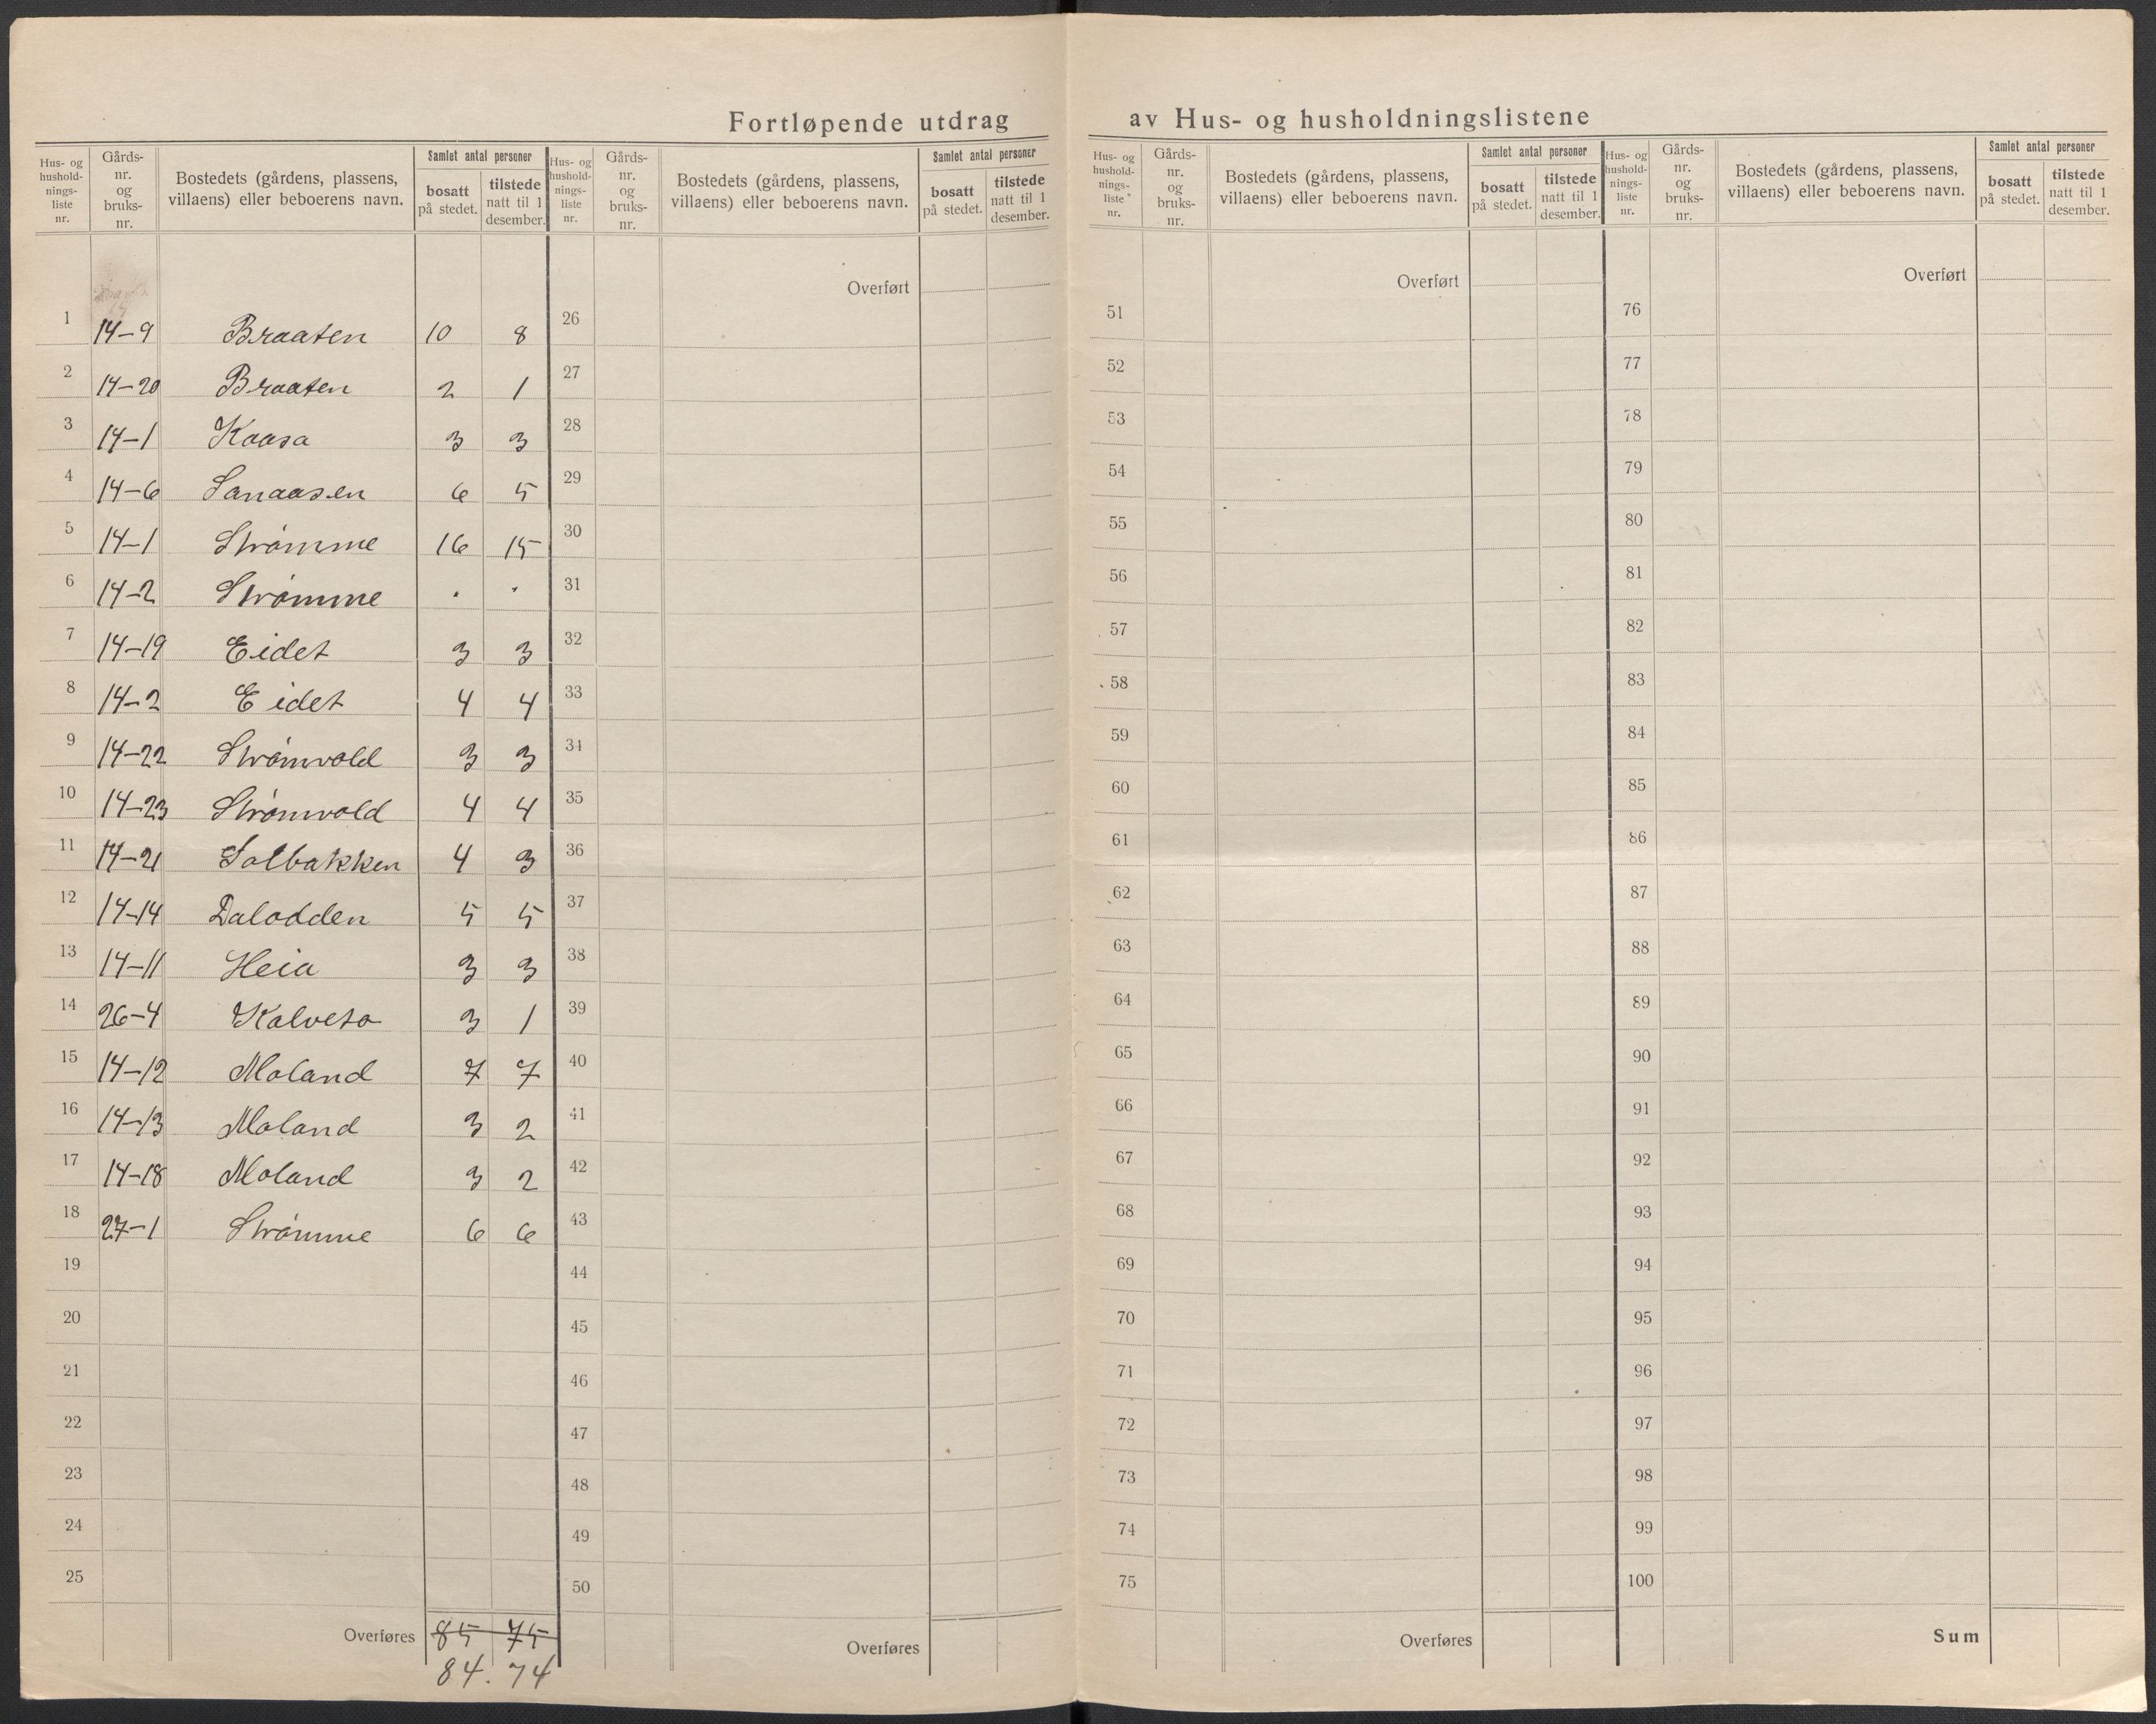 Fortløpende utdrag av Hus- og husholdningslistene
Hus- og hushold- nings- liste nr. | Gårds- nr. og bruks- nr. | Bostedets (gårdens, plassens, villaens) eller beboerens navn. | Samlet antal personer | bosatt på stedet. | tilstede natt til 1 desember.
Hus- og hushold- nings- liste nr. | Gårds- nr. og bruks- nr. | Bostedets (gårdens, plassens, villaens) eller beboerens navn. | Samlet antal personer | bosatt på stedet. | tilstede natt til 1 desember.
Hus- og hushold- nings- liste nr. | Gårds- nr. og bruks- nr. | Bostedets (gårdens, plassens, villaens) eller beboerens navn. | Samlet antal personer | bosatt på stedet. | tilstede natt til 1 desember.
Hus- og hushold- nings- liste nr. | Gårds- nr. og bruks- nr. | Bostedets (gårdens, plassens, villaens) eller beboerens navn. | Samlet antal personer | bosatt på stedet. | tilstede natt til 1 desember.
1 14-9 Braaten 10 8
2 14-20 Braaten 2 1
3 14-1 Kaasa 3 3
4 14-6 Sanaasen 6 5
5 14-1 Strømme 16 15
6 14-2 Strømme . .
7 14-19 Eidet 3 3
8 14-2 Eidet 4 4
9 14-22 Strømvold 3 3
10 14-23 Strømvold 4 4
11 14-21 Solbakken 4 3
12 14-14 Dalodden 5 5
13 14-11 Heia 3 3
14 26-4 Kalveto 3 1
15 14-12 Moland 7 7
16 14-13 Moland 3 2
17 14-18 Moland 3 2
18 27-1 Strømme 6 6
19
20
21
22
23
24
25
Overføres 85 75
84. 74
Overført
26
27
28
29
30
31
32
33
34
35
36
37
38
39
40
41
42
43
44
45
46
47
48
49
50
Overføres
Overført
51
52
53
54
55
56
57
58
59
60
61
62
63
64
65
66
67
68
69
70
71
72
73
74
75
Overføres
Overført
76
77
78
79
80
81
82
83
84
85
86
87
88
89
90
91
92
93
94
95
96
97
98
99
100
Sum